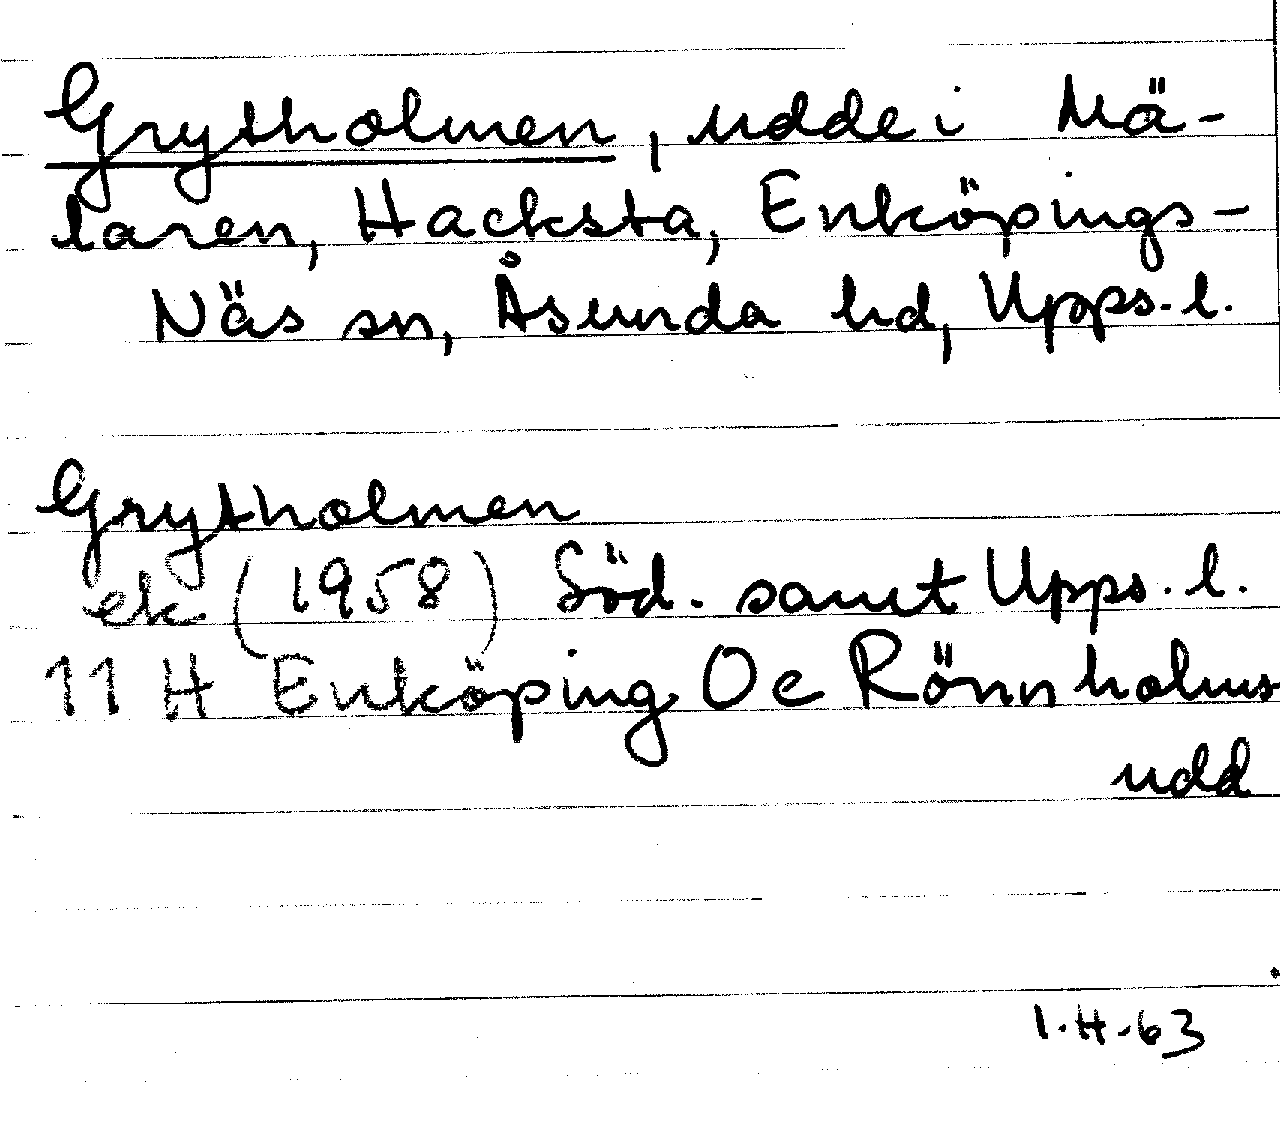 Grytholmen, udde i Mä-
laren, Hacksta, Enköpings-
Näs sn, Åsunda hd, Upps. l.
Grytholmen
ek (1958) Söd. samt Upps. l.
11 H Enköping Oe Rönnholms
udd
I. H. 63